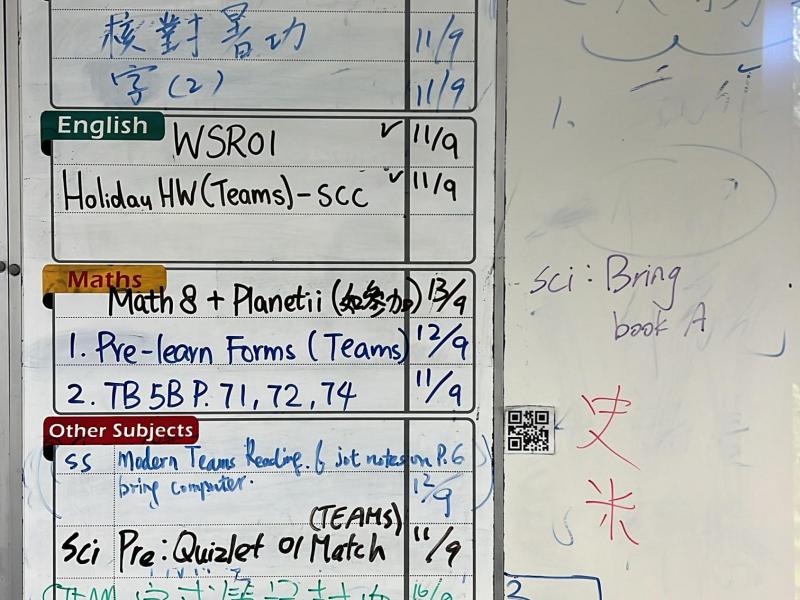 核對暑功 11/9
字(2) 11/9
English
WSR01 ✓ 11/9
Holiday HW(Teams)-SCC ✓ 11/9
Maths
Math 8 + Planetii (如參加) 13/9
1. Pre-learn Forms (Teams) 12/9
2. TB 5B P. 71, 72, 74 11/9
Other Subjects
SS Modern Teams Reading & jot notes on P.6
bring computer. 12/9
(TEAMS)
Sci Pre: Quizlet 01 Match 11/9
16/9
1.
sci: Bring
book A
史
米
2